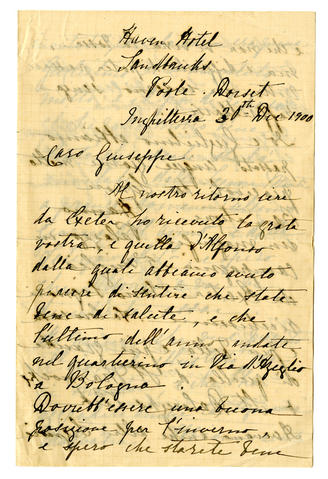 Haven Hotel
Sandbanks
Poole. Dorset
Inghilterra 30th Dic 1900
Caro Giuseppe
Al nostro ritorno ieri
da Exeter ho ricevuto la grata
vostra, e quella d'Alfonso
dalla quali abbiamo avuto
piacere di sentire che state
bene di salute, e che
l'ultimo dell'anno andate
nel quartierino in Via D'Azeglio
a Bologna.
Dovrebb'essere una buona
posizione per l'inverno
e spero che starete bene